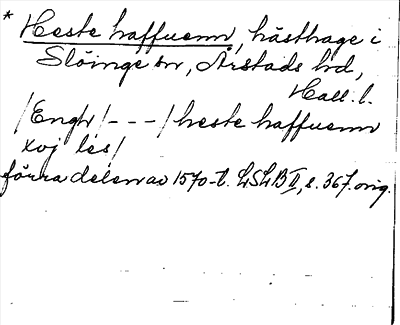 * Heste haffuenn, hästhage i
Slöinge sn, Årstads hd,
Hall. l.
/Engh/ - - - / heste haffuenn
xvj les/
förra delen av 1570-t. LSLB II, s. 367. orig.